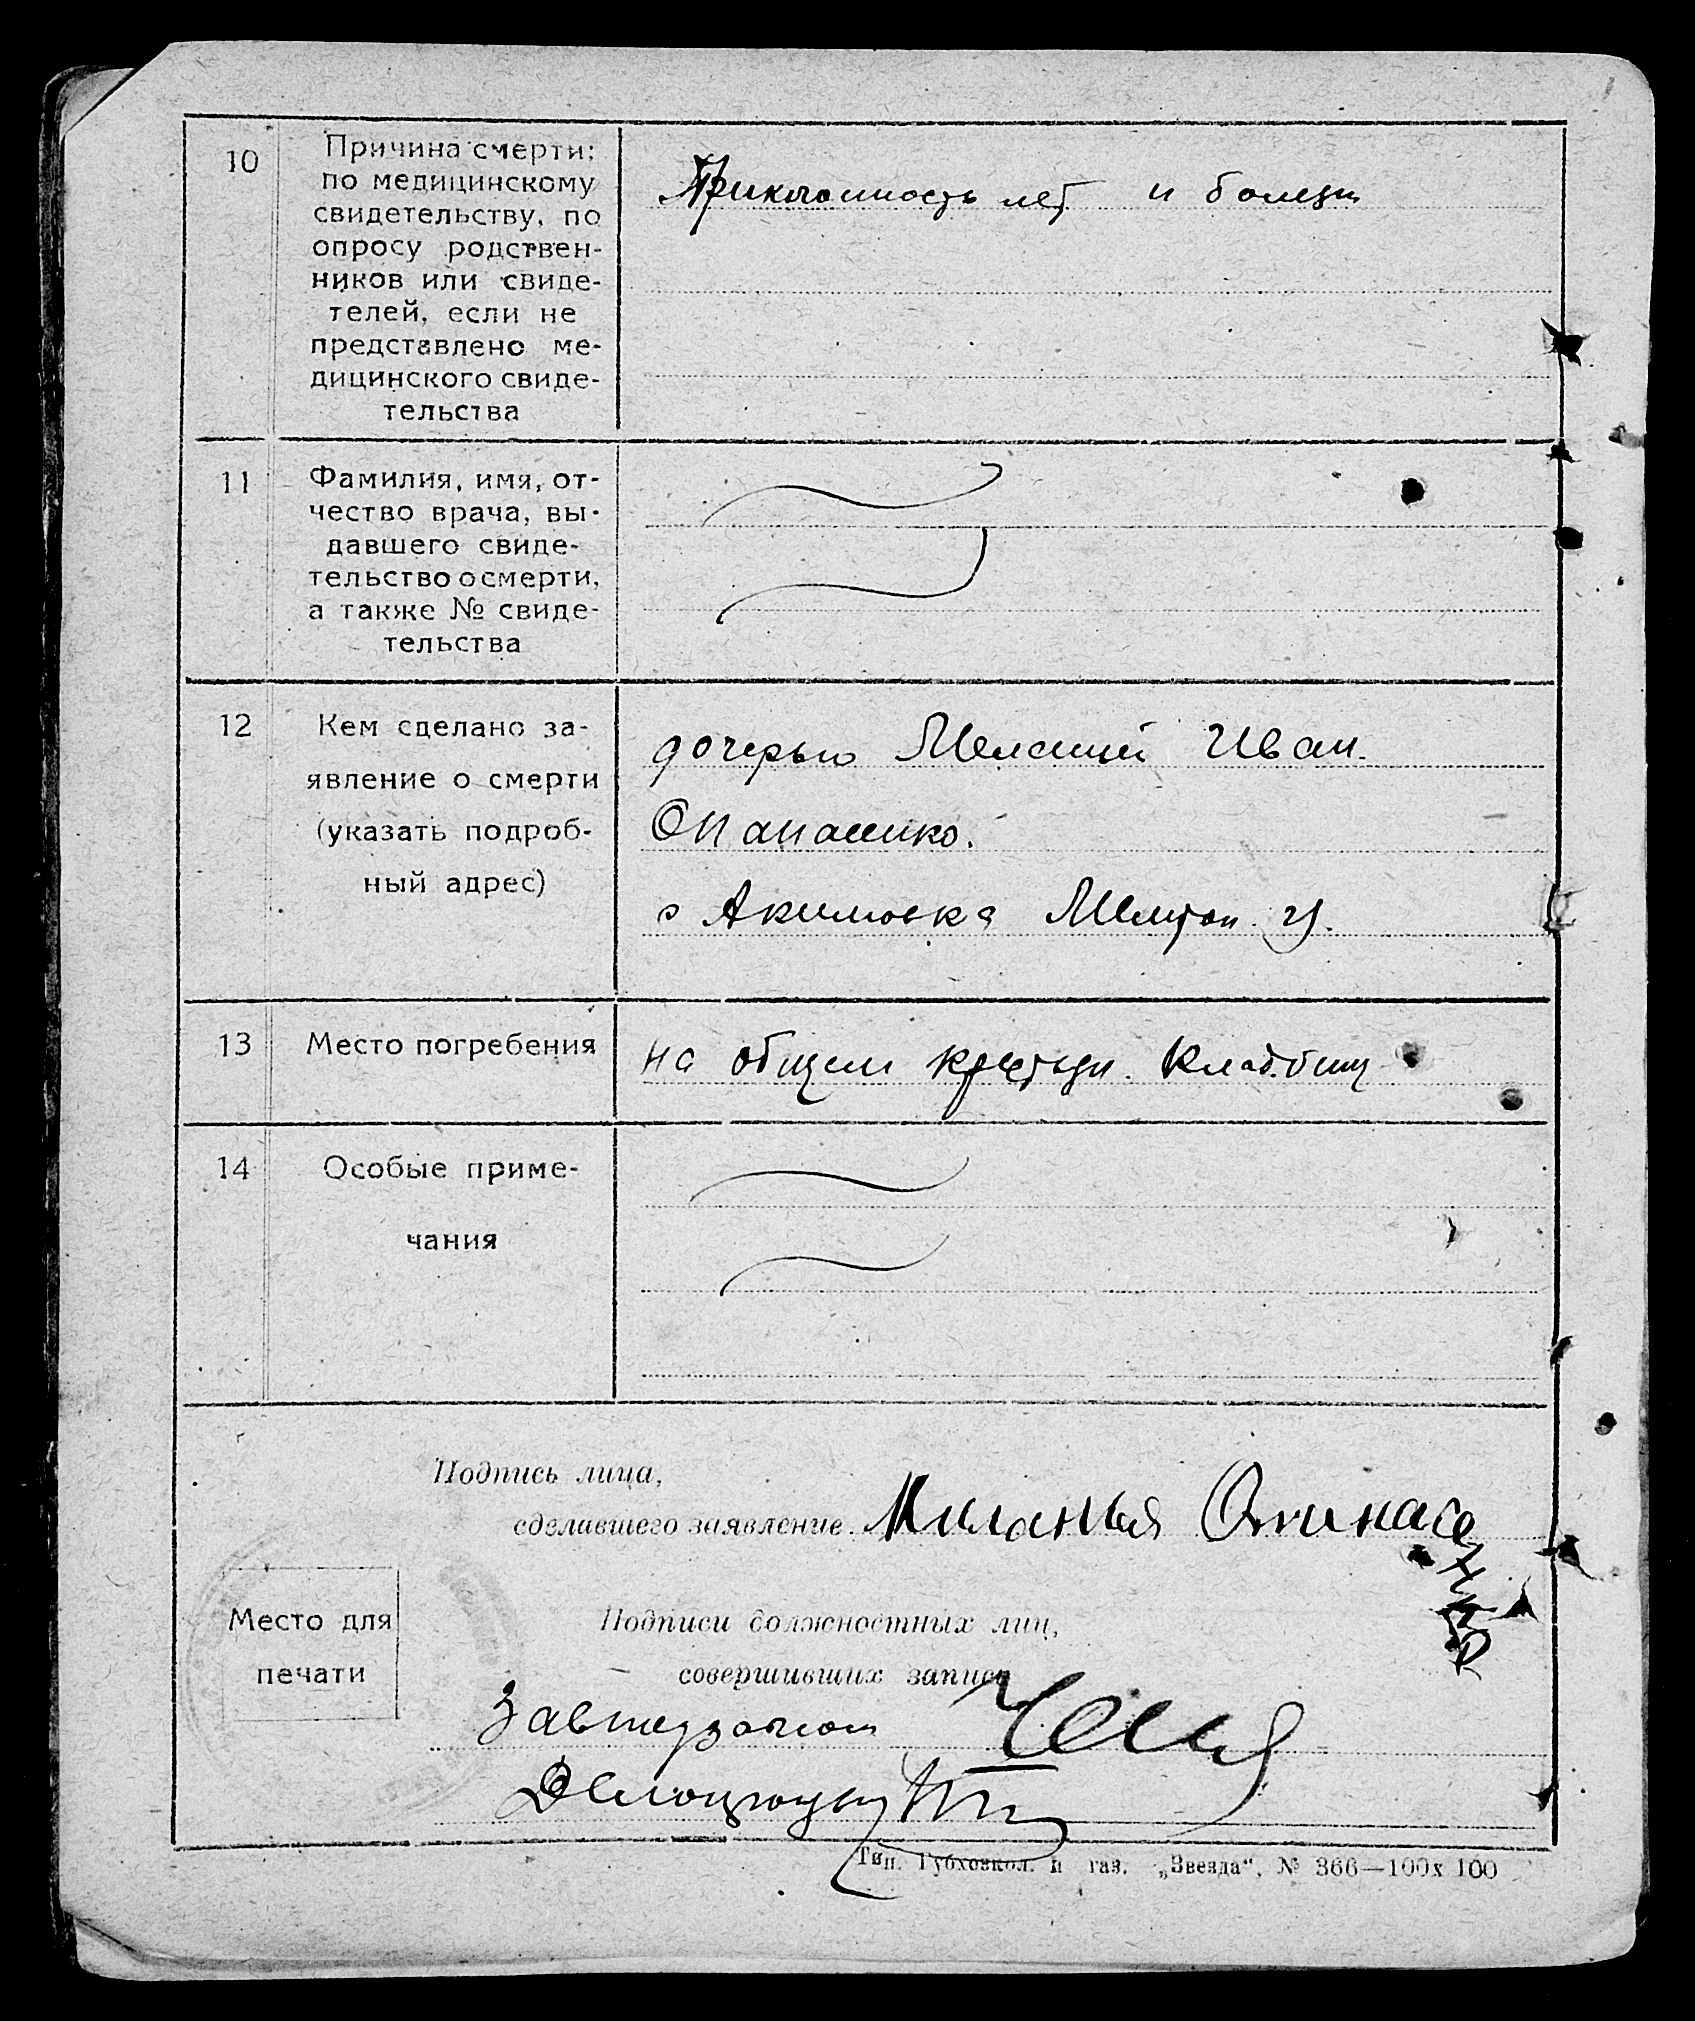 10
Причина смерти:
по медицинскому
свидетельству, по
опросу родствен-
ников или свиде-
телей, если не
представлено ме-
дицинского свиде-
тельства
лет и болезн
11
Фамилия, имя, от-
чество врача, вы-
давшего свиде-
тельство о смерти,
а также № свиде-
тельства
12
Кем сделано за-
явление о смерти
(указать подроб-
ный адрес)
дочерью Меланией Иван.
Опанасенко.
с Акимовка Мелитоп. у.
13
Место погребения
на общем крестьян. кладбищ
14
Особые приме-
чания
Подпись лица,
сделавшего заявление Миланья
Место для
печати
Подписи должностных лиц,
совершивших запись
Завподотделом
Делопроизв
Тип. Губхозкол. и газ. „Звезда“. № 366—100х100